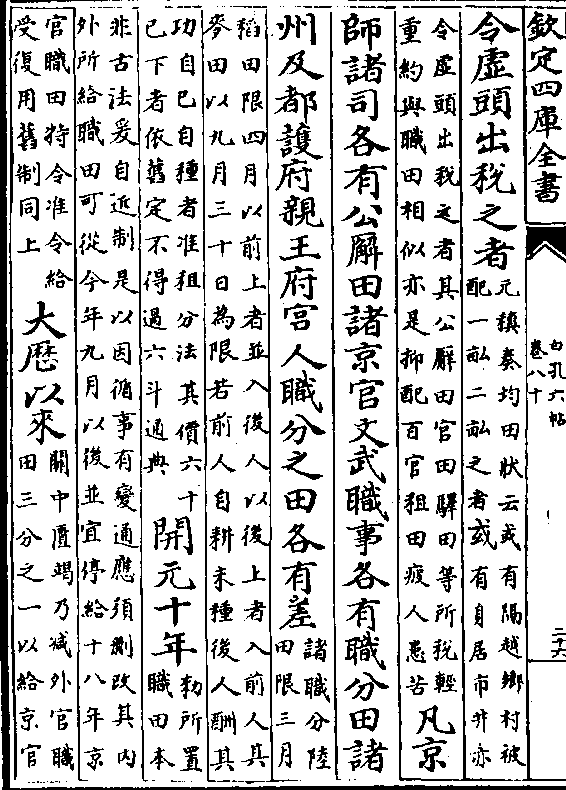 欽定四庫全書
白孔六帖
卷八十
二十六
令虛頭出稅之者
元稹奏均田狀云或有隔越鄉村被
配一畝二畝之者或有身居市井亦
令虛頭出稅之者其公廨田官田驛田等所稅輕
重約與職田相似亦是抑配百官租田疲人患苦
凡京
師諸司各有公廨田諸京官文武職事各有職分田諸
州及都護府親王府宮人職分之田各有差
諸職分陸
田限三月
稻田限四月以前上者並入後人以後上者入前人其
麥田以九月三十日為限若前人自耕未種後人酬其
功自已自種者准租分法其價六十
已下者依舊定不得過六斗通典
開元十年
勅所置
職田本
非古法爰自近制是以因循事有變通應須刪改其内
外所給職田可從今年九月以後並宜停給十八年京
官職田特令准令給
受復用舊制同上
大厯以來
關中匱竭乃減外官職
田三分之一以給京官